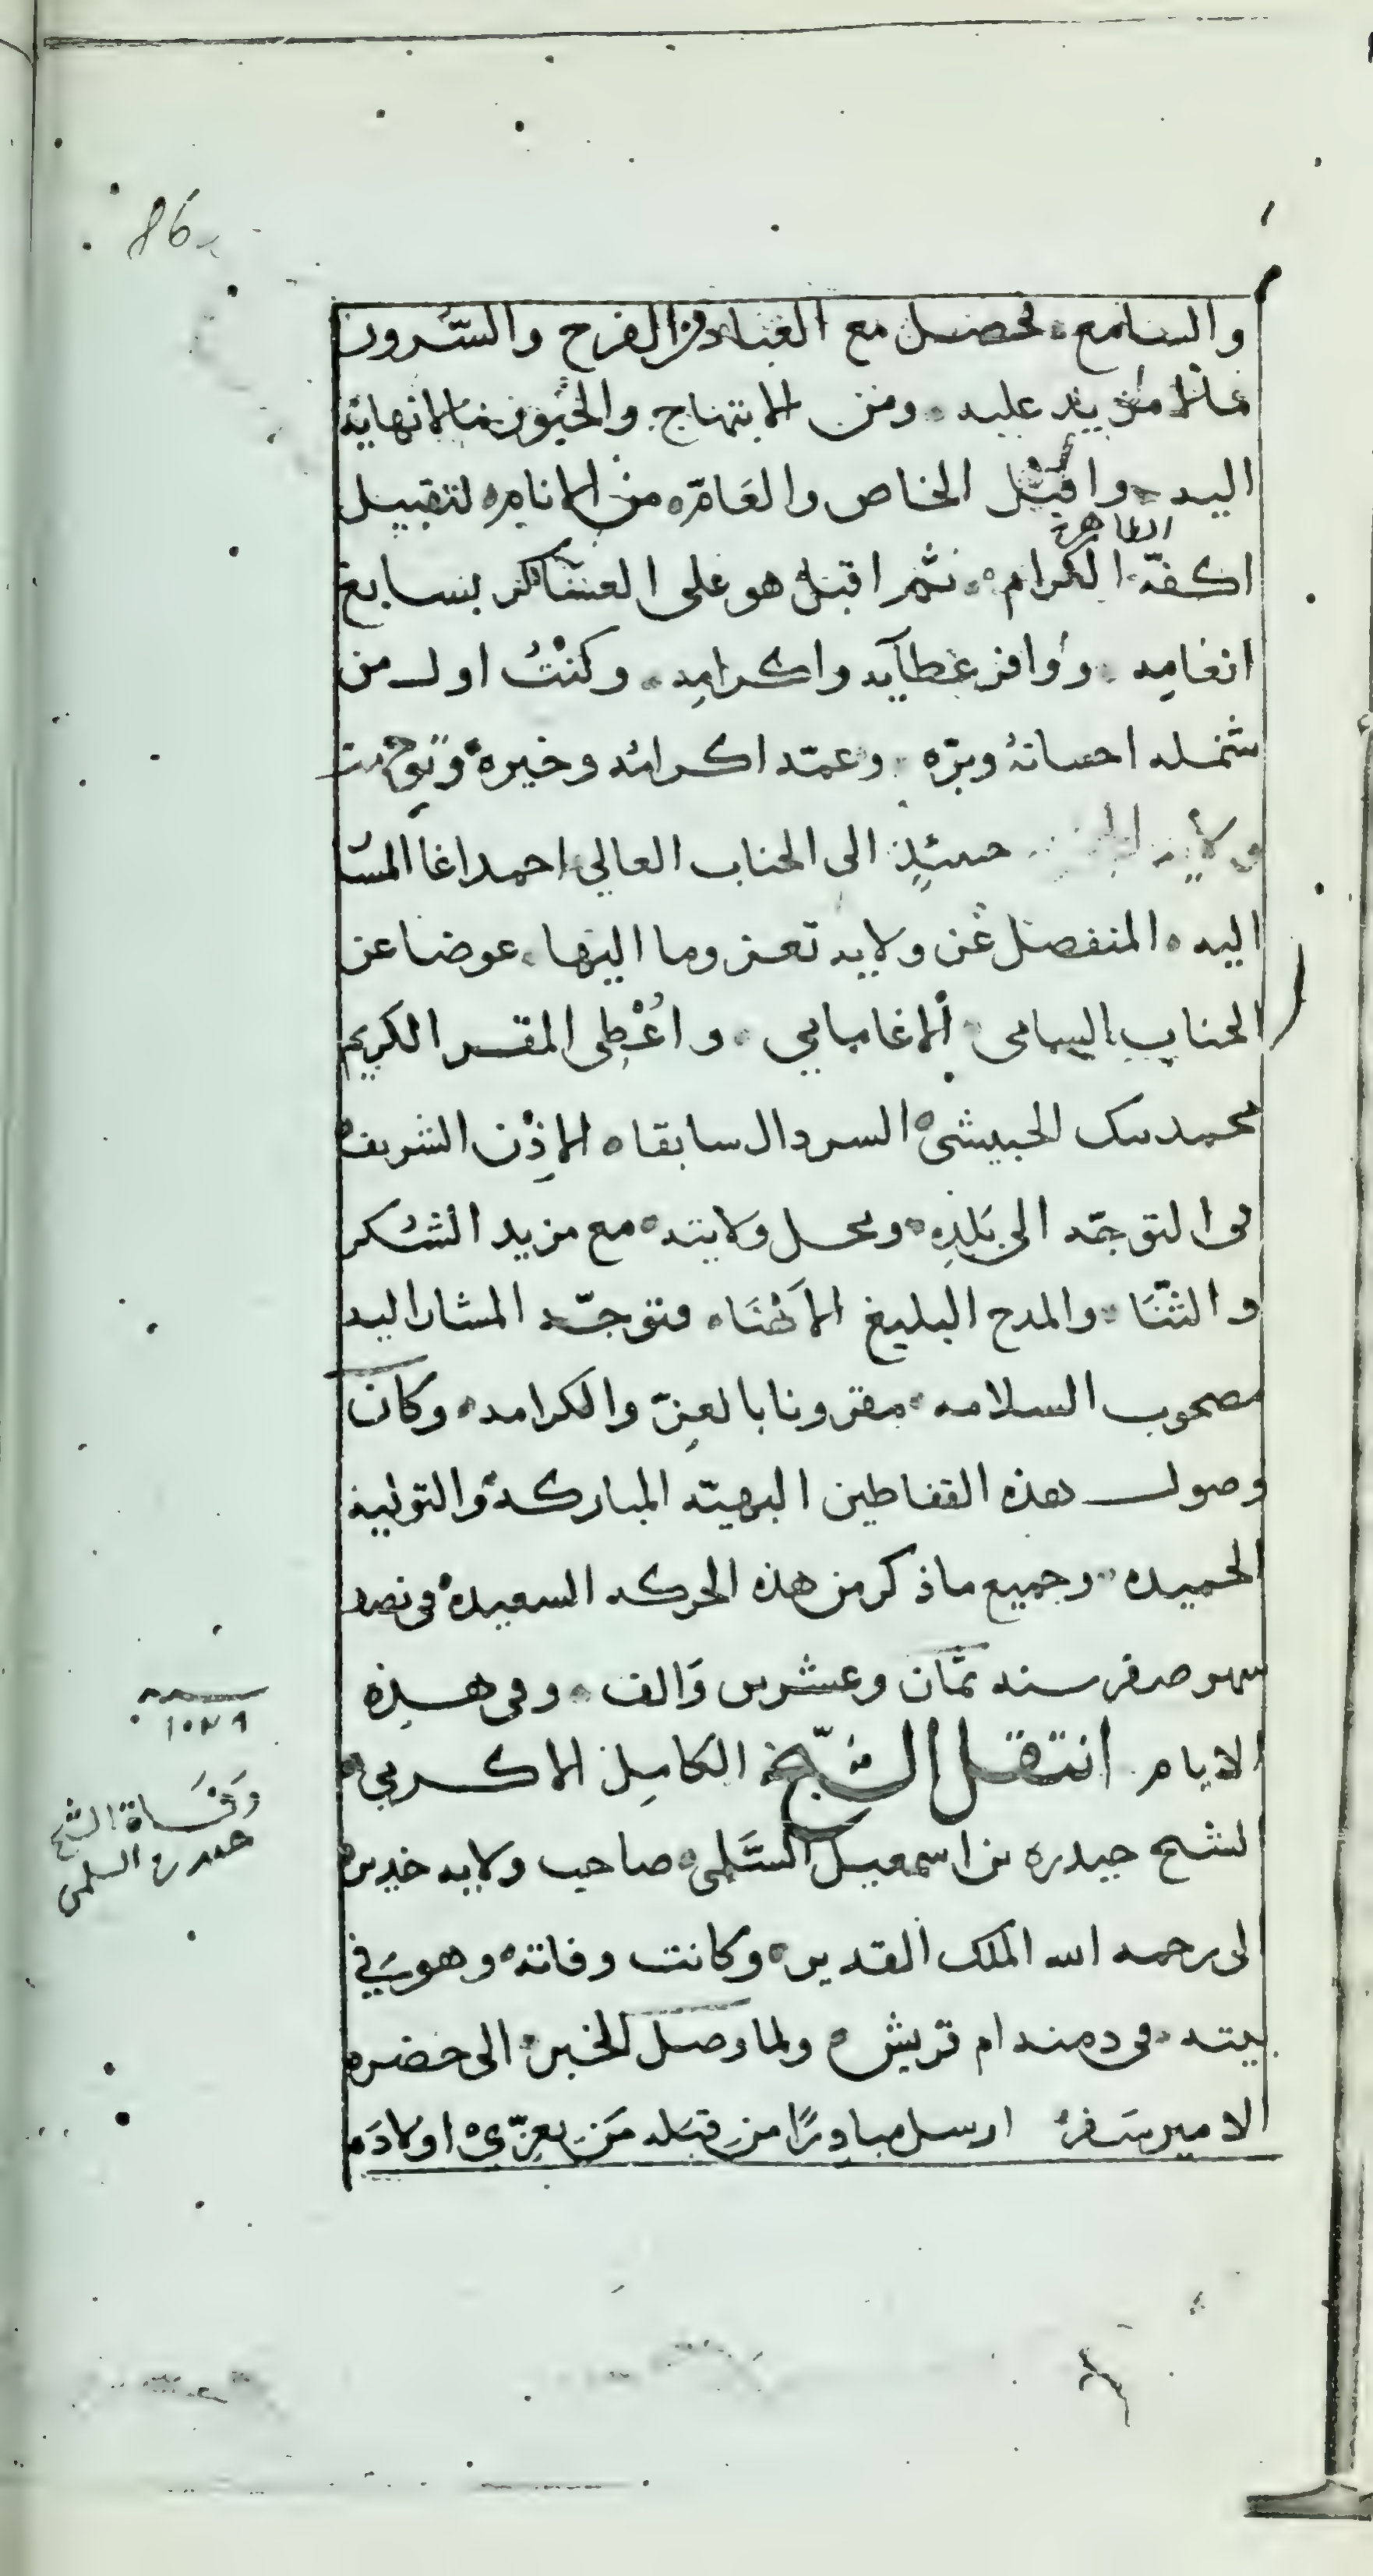 86
والسامع. فحصل مع العباد من الفرح والسرور
ما لا مزيد عليه. ومن الابتهاج والحبور ما لا نهاية
اليه. واقبل الخاص والعام من الانام لتقبيل
الطاهرة
اكفه الكرام. ثم اقبل هو على العساكر بسابغ
انعامه. ووافر عطآيه واكرامه. وكنتُ اول من
شمله احسانهُ وبرّه. وعمّه اكرامُه وخيره وتوجهت
ولاية حينئذٍ الى الجناب العالي احمد اغا المشا
اليه. المنفصل عن ولايه تعز وما اليها. عوضا عن
الجناب السامي الاغا مامي. واُعْطِى المقر الكريم
محمد بيك الحبيشي السردال سابقا الاِذْن الشريف
في التوجّه الى بَلَدِه ومحل ولايته مع مزيد الشكر
والثّنَا والمدح البليغ الاَهْنَا فتوجّه المشار اليه
مصحوب السلامه مقرونا بالعزّ والكرامه. وكان
وصول هذه القفاطين البهيّه المباركه والتولية
الحميده وجميع ما ذكر من هذه الحركه السعيده في نصف
شهر صفر سنه ثمان وعشرين وَالف. وفي هذه
الايام انتقل الشيخ الكامل الاكرمي
الشيخ حيدره بن اسمعيل السَّلمي صاحب ولايه خدير
الى رحمه الله الملك القدير وكانت وفاته وهو في
بيته. في دمنه ام قريش ولما وصل الخبر الى حضره
الامير سَفر ارسل مبادرًا من قبَله مَن يعزّي اولادَه
سنه
١٠٢٨
وَفَاة الشيخ
حيدره السلمي